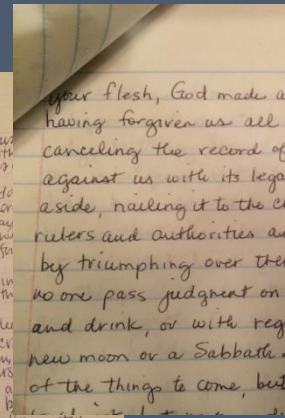 your flesh, God made a
having forgiven us all
canceling the record of
against us with its lega
aside, nailing it to the c
rulers and authorities a
by triumphing over the
no one pass judgment on
and drink, or with reg
new moon or a Sabbath.
of the things to come, but